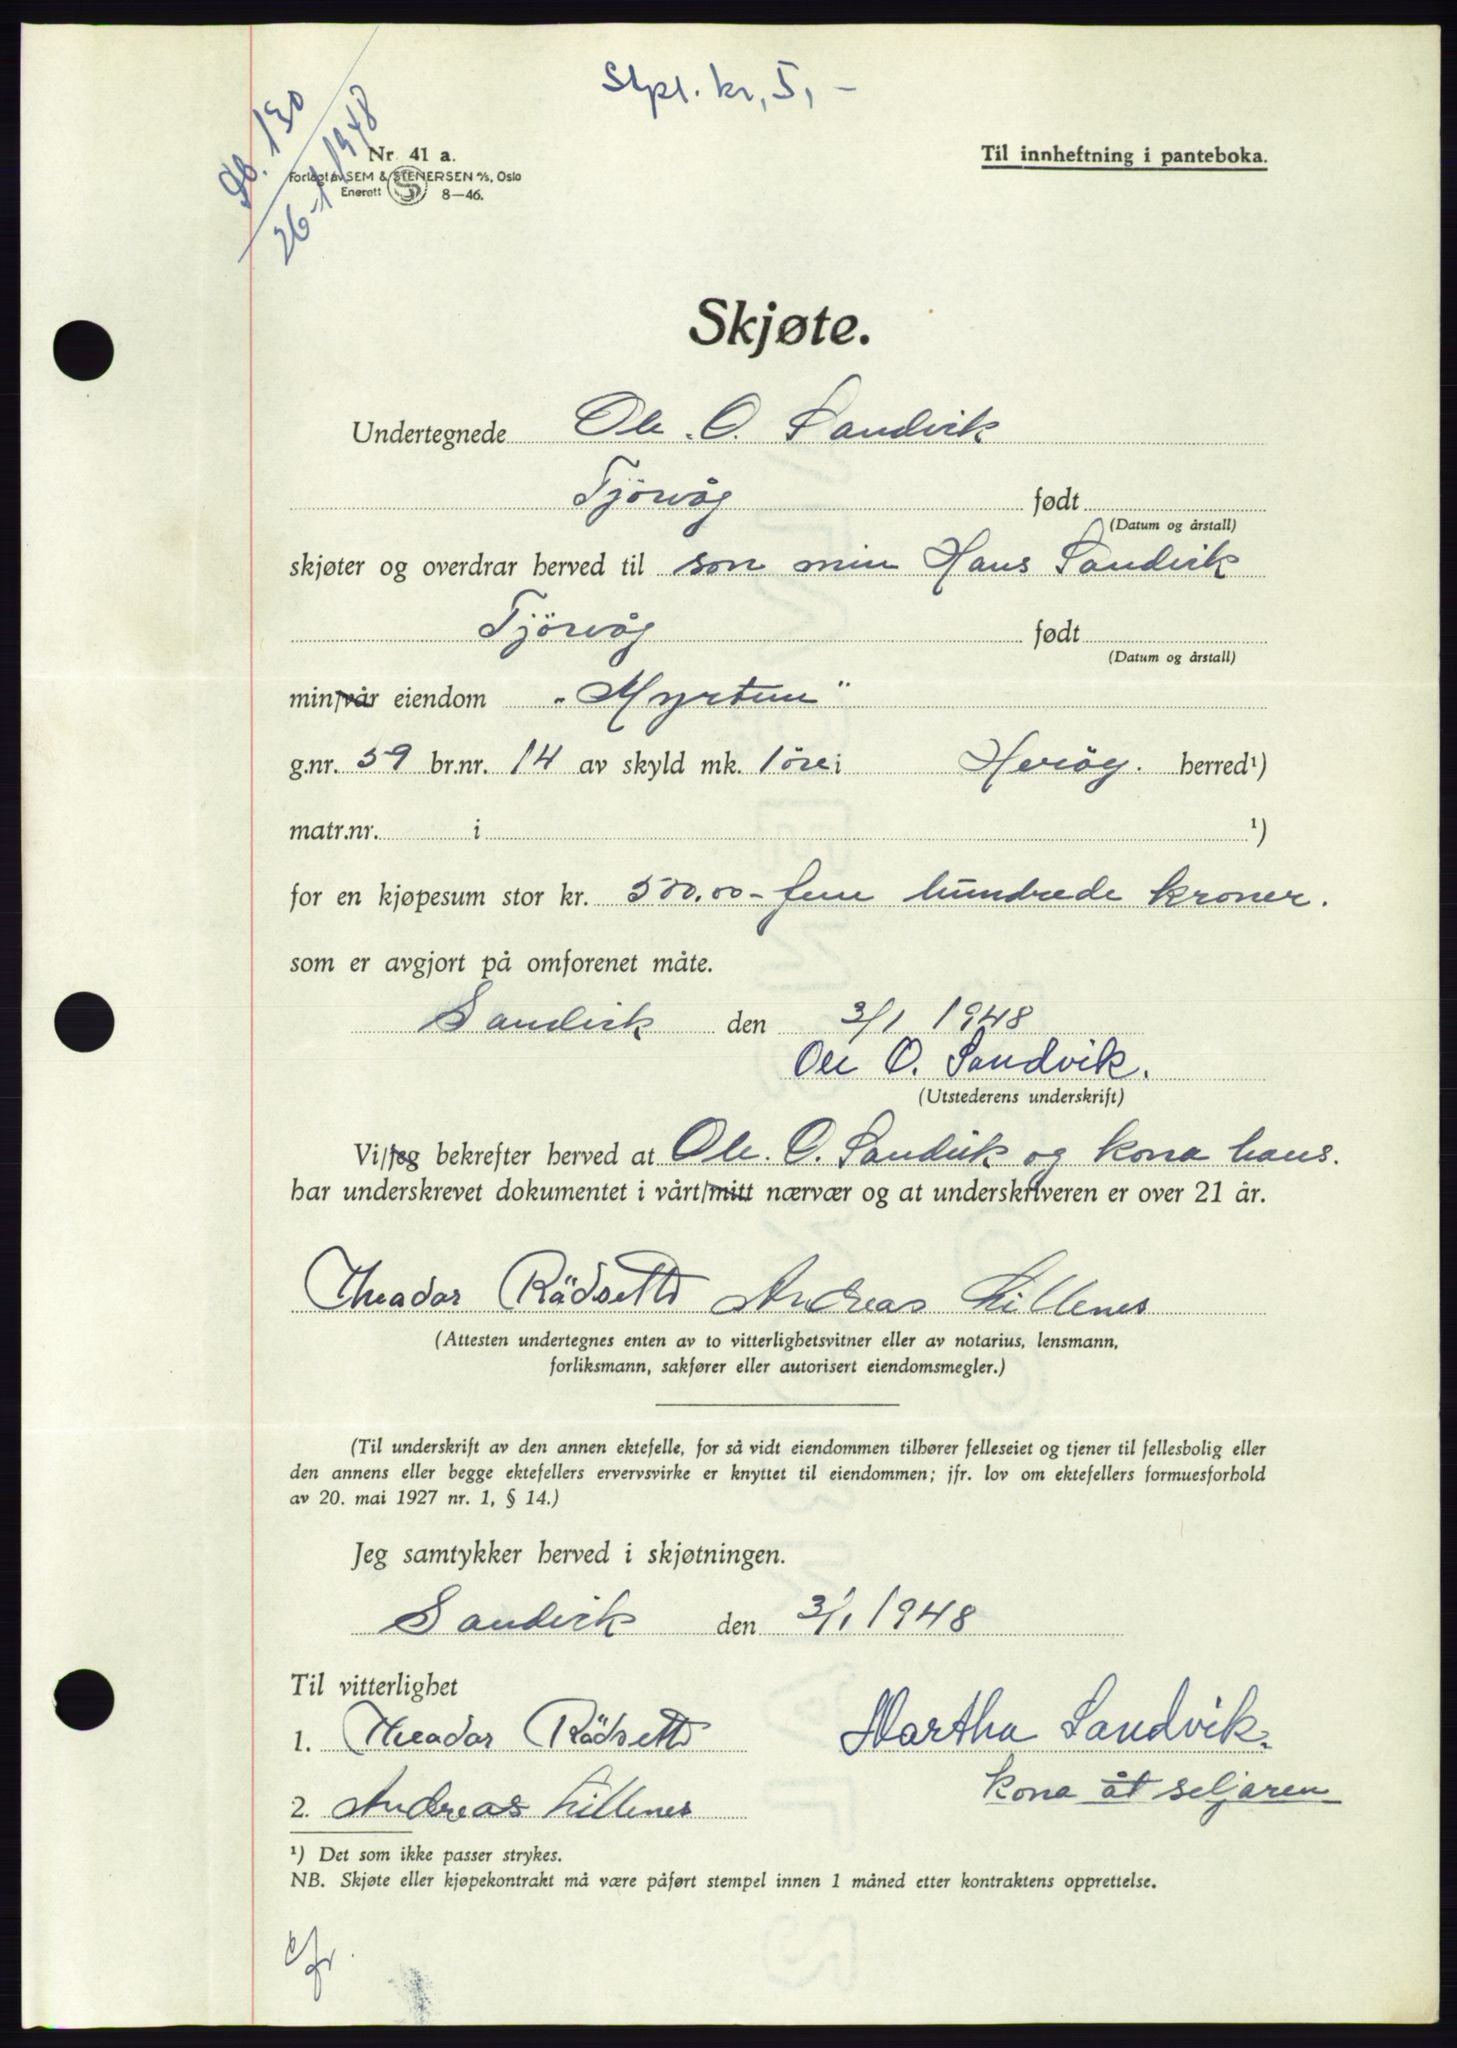 Stpl. kr, 5, -
Db. 130
26-1-1948
Nr. 41 a.
Forlagt av SEM & STENERSEN A/S, Oslo
Enerett S 8-46.
Til innheftning i panteboka.
Skjøte.
Undertegnede Ole. O. Sandvik
Tjörvåg født
(Datum og årstall)
skjøter og overdrar herved til son min Hans Sandvik
Tjörvåg født
(Datum og årstall)
min/vår eiendom "Myrtun"
g.nr. 59 br.nr. 14 av skyld mk. 1 öre i Heröy. herred¹)
matr.nr. i ¹)
for en kjøpesum stor kr. 500.00 - fem hundrede kroner.
som er avgjort på omforenet måte.
Sandvik den 3/1 1948
Ole O. Sandvik.
(Utstederens underskrift)
Vi/jeg bekrefter herved at Ole. O. Sandvik og kona hans.
har underskrevet dokumentet i vårt/mitt nærvær og at underskriveren er over 21 år.
Theadar Rädsetth Andreas Lillenes
(Attesten undertegnes enten av to vitterlighetsvitner eller av notarius, lensmann,
forliksmann, sakfører eller autorisert eiendomsmegler.)
(Til underskrift av den annen ektefelle, for så vidt eiendommen tilhører felleseiet og tjener til fellesbolig eller
den annens eller begge ektefellers ervervsvirke er knyttet til eiendommen; jfr. lov om ektefellers formuesforhold
av 20. mai 1927 nr. 1, § 14.)
Jeg samtykker herved i skjøtningen.
Sandvik den 3/1 1948
Til vitterlighet
1. Theadar Rädsetth
Martha Sandvik.
kona åt seljaren
2. Andreas Lillenes
¹) Det som ikke passer strykes.
NB. Skjøte eller kjøpekontrakt må være påført stempel innen 1 måned etter kontraktens opprettelse.